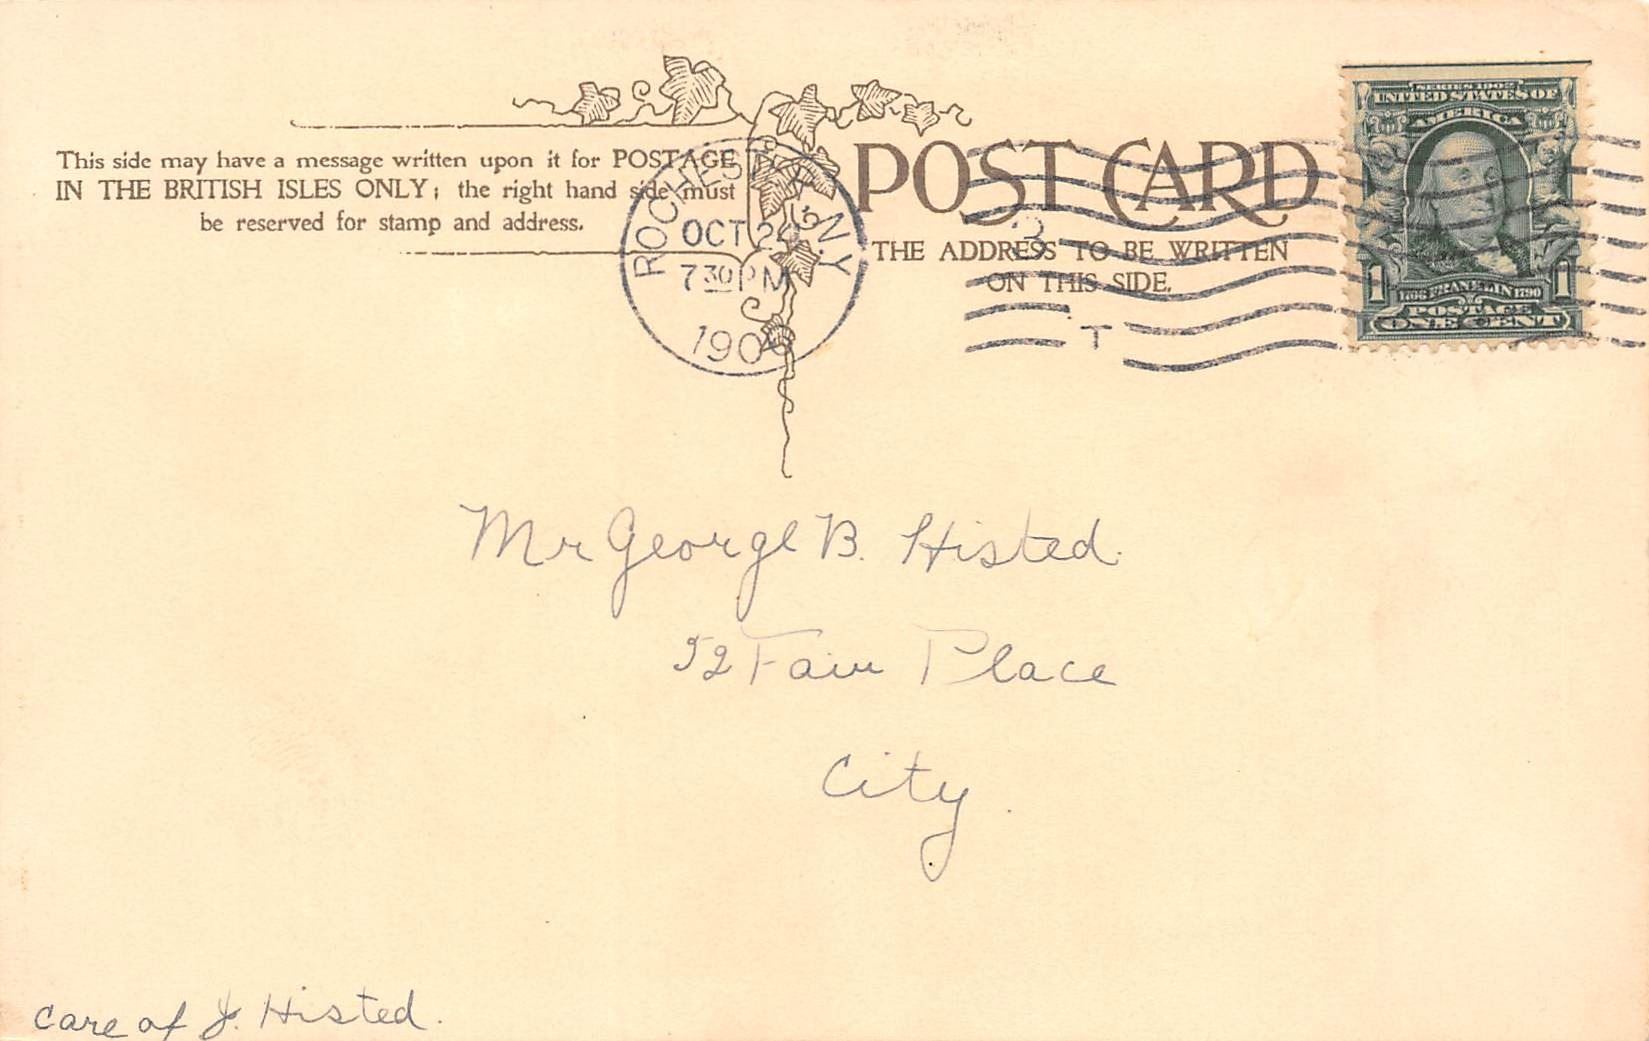 This side may have a message written upon it for POSTAGE
IN THE BRITISH ISLES ONLY; the right hand side must
be reserved for stamp and address.
POST CARD
THE ADDRESS TO BE WRITTEN
ON THIS SIDE.
ROCHESTER, N.Y.
OCT 24
7 30 PM
190
3
T
SERIES 1902
UNITED STATES OF
AMERICA
1 1706 FRANKLIN 1790 1
POSTAGE
ONE CENT
Mr George B. Histed.
52 Fair Place
City.
Care of J. Histed.